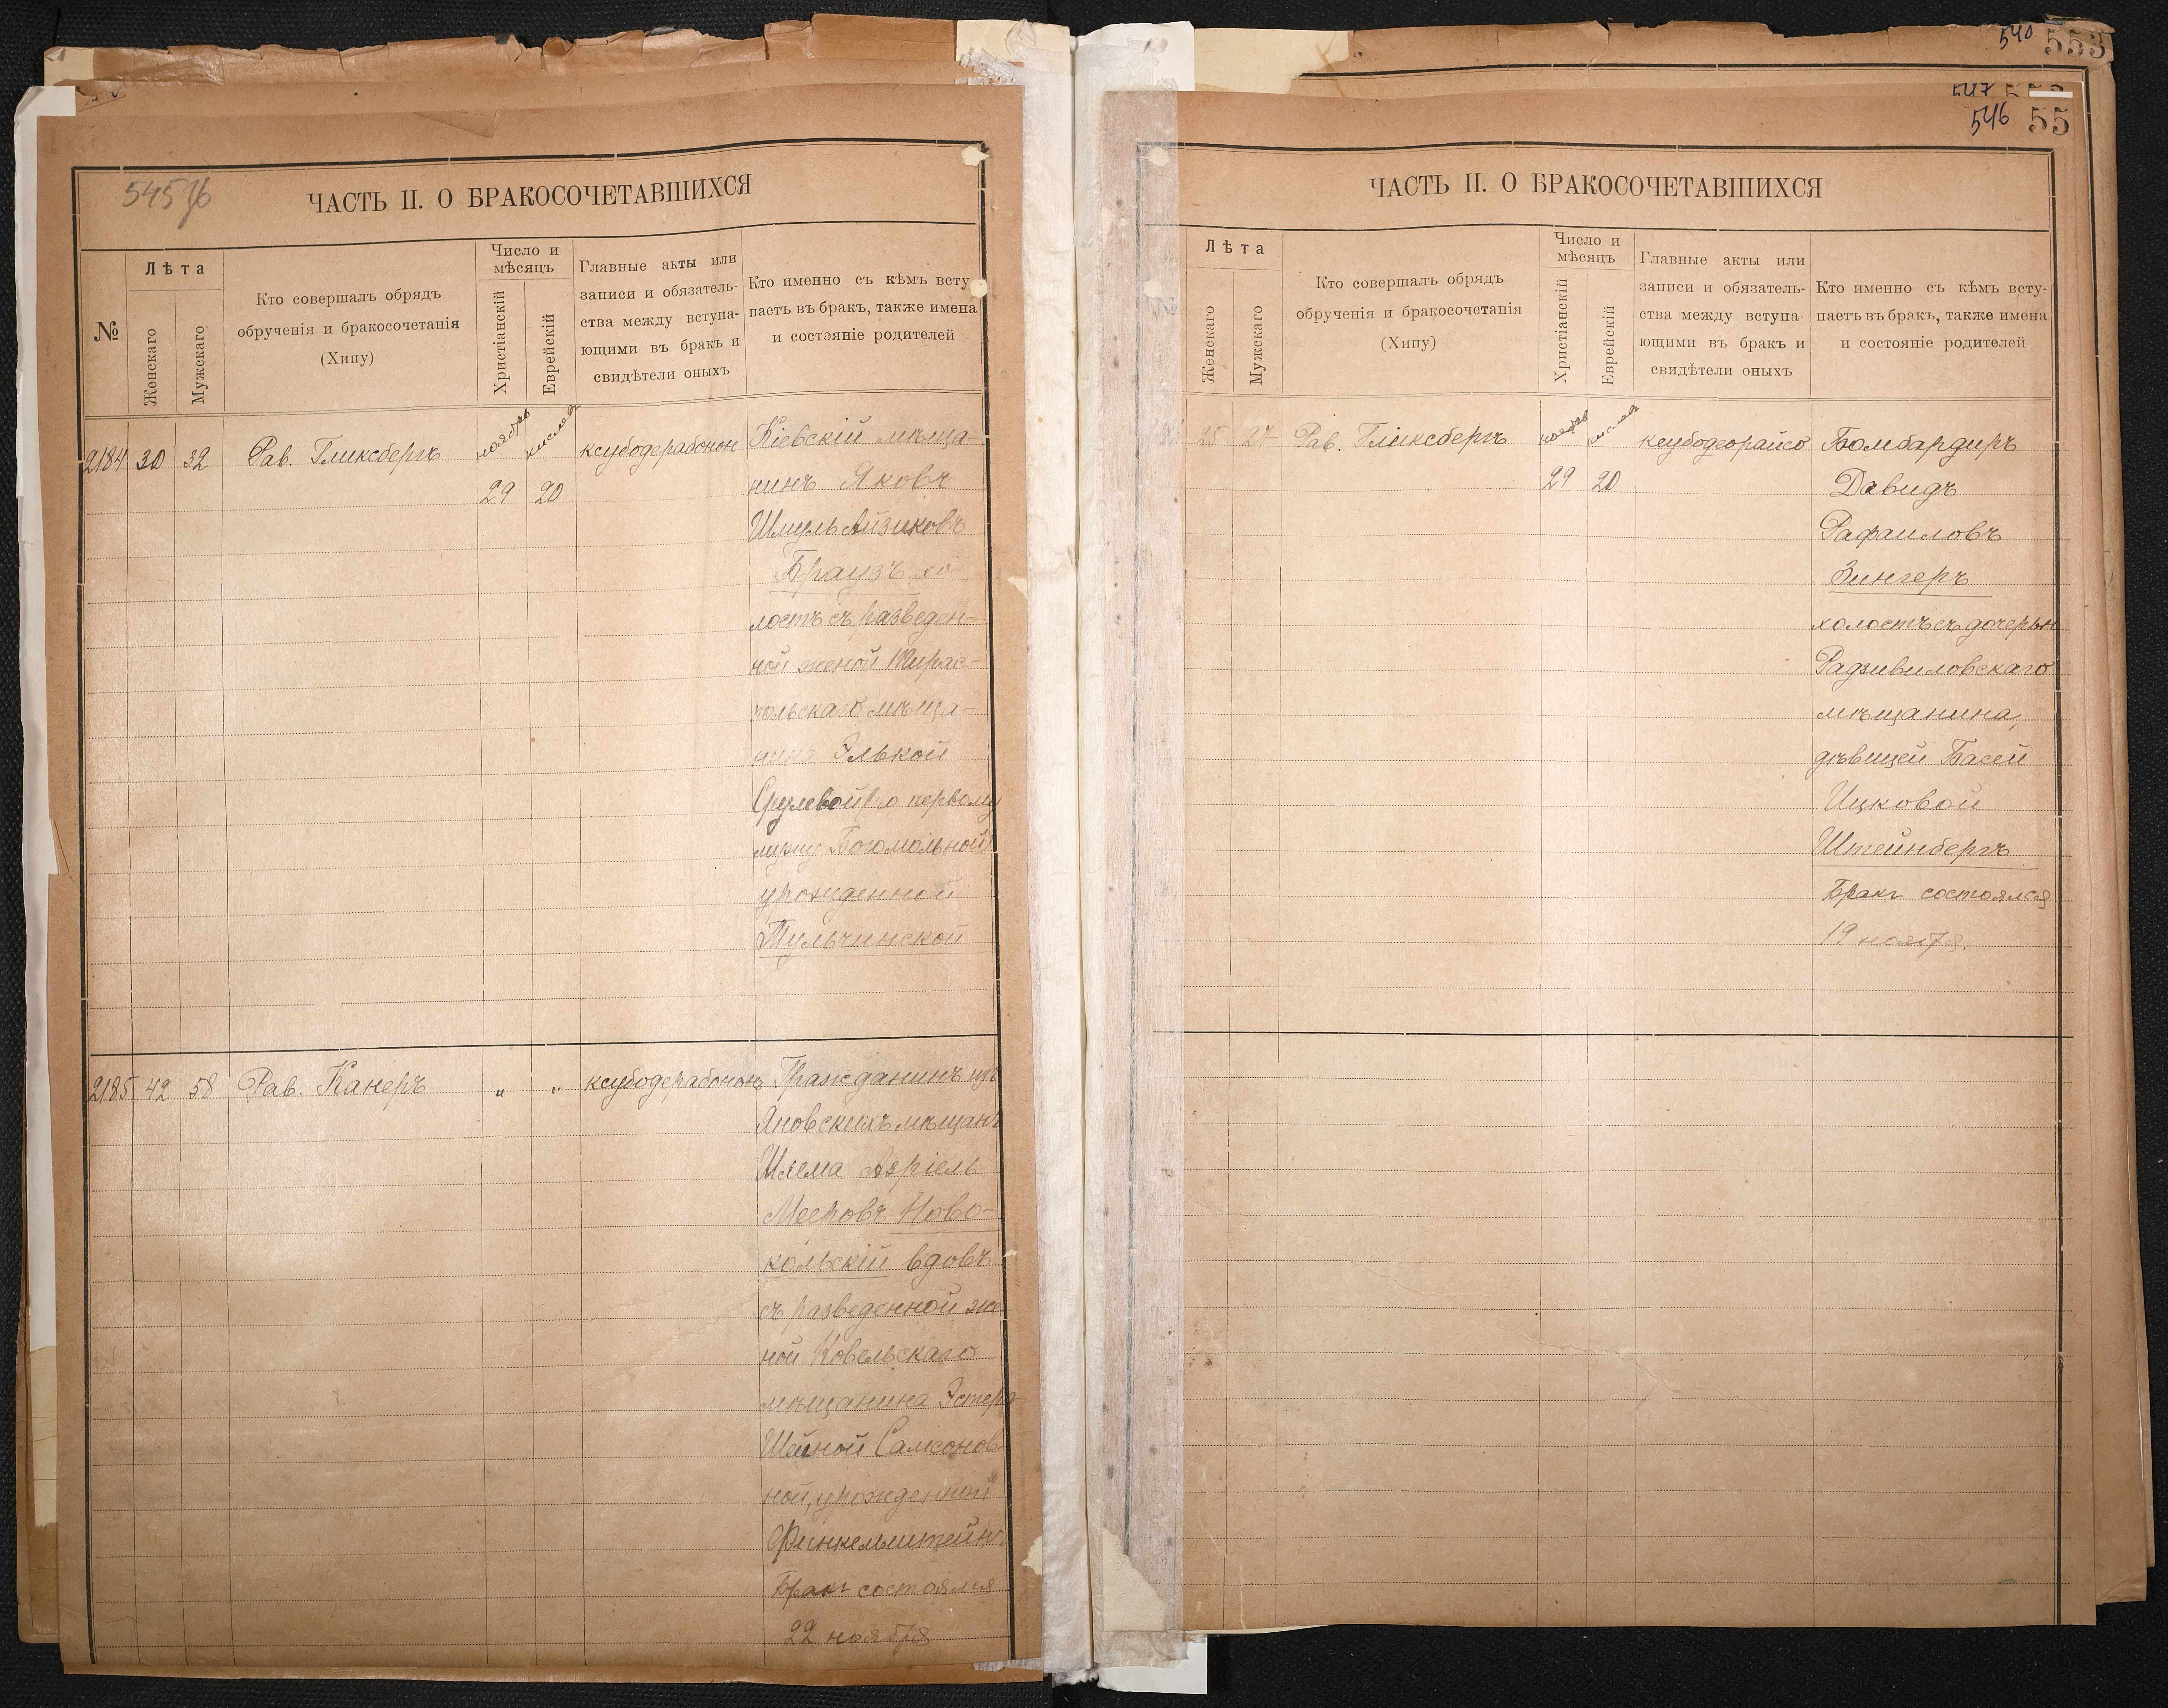 545
ЧАСТЬ II. О БРАКОСОЧЕТАВШИХСЯ
№
Лѣта
Женскаго
Мужскаго
Кто совершалъ обрядъ
обрученія и бракосочетанія
(Хипу)
Число и
мѣсяцъ
Христіанскій
Еврейскій
Главные акты или
записи и обязатель-
ства между вступа-
ющими въ бракъ и
свидѣтели оныхъ
Кто именно съ кѣмъ всту
паетъ въ бракъ, также имена
и состояніе родителей
2184 30 32 Рав. Гликсбергъ ноябрь кислев ксубодерабонон Кіевскій мѣща-
29 20 нинъ Яковъ
Шмуль Айзиковъ
Браузъ хо
лостъ съ разведен-
ной женой Тирас-
польскаго мѣща-
нина Элькой
Срулевой (по первому
мужу Богомольной)
урожденной
Тульчинской
2185 42 58 Рав. Канеръ " " ксубодерабонон Гражданинъ изъ
Яновскихъ мѣщанъ
Шлема Азріель
Мееровъ Ново-
кольскій вдовъ
съ разведенной же
ной Ковельскаго
мѣщанина Эстера
Шейной Самсонов-
ной, урожденной
Финкельштейнъ
Бракъ состоялся
22 ноября
540 553
547
546 55
ЧАСТЬ II. О БРАКОСОЧЕТАВШИХСЯ
Лѣта
Женскаго
Мужскаго
Кто совершалъ обрядъ
обрученія и бракосочетанія
(Хипу)
Число и
мѣсяцъ
Христіанскій
Еврейскій
Главные акты или
записи и обязатель-
ства между вступа-
ющими въ бракъ и
свидѣтели оныхъ
Кто именно съ кѣмъ всту-
паетъ въ бракъ, также имена
и состояніе родителей
25 27 Рав. Гликсбергъ ноябрь кислев ксубодеорайсо Бомбардиръ
29 20 Давидъ
Рафаиловъ
Зингеръ
холостъ съ дочерью
Радзивиловскаго
мѣщанина,
дѣвицей Басей
Ицковой
Штейнбергъ
Бракъ состоялся
19 ноября.